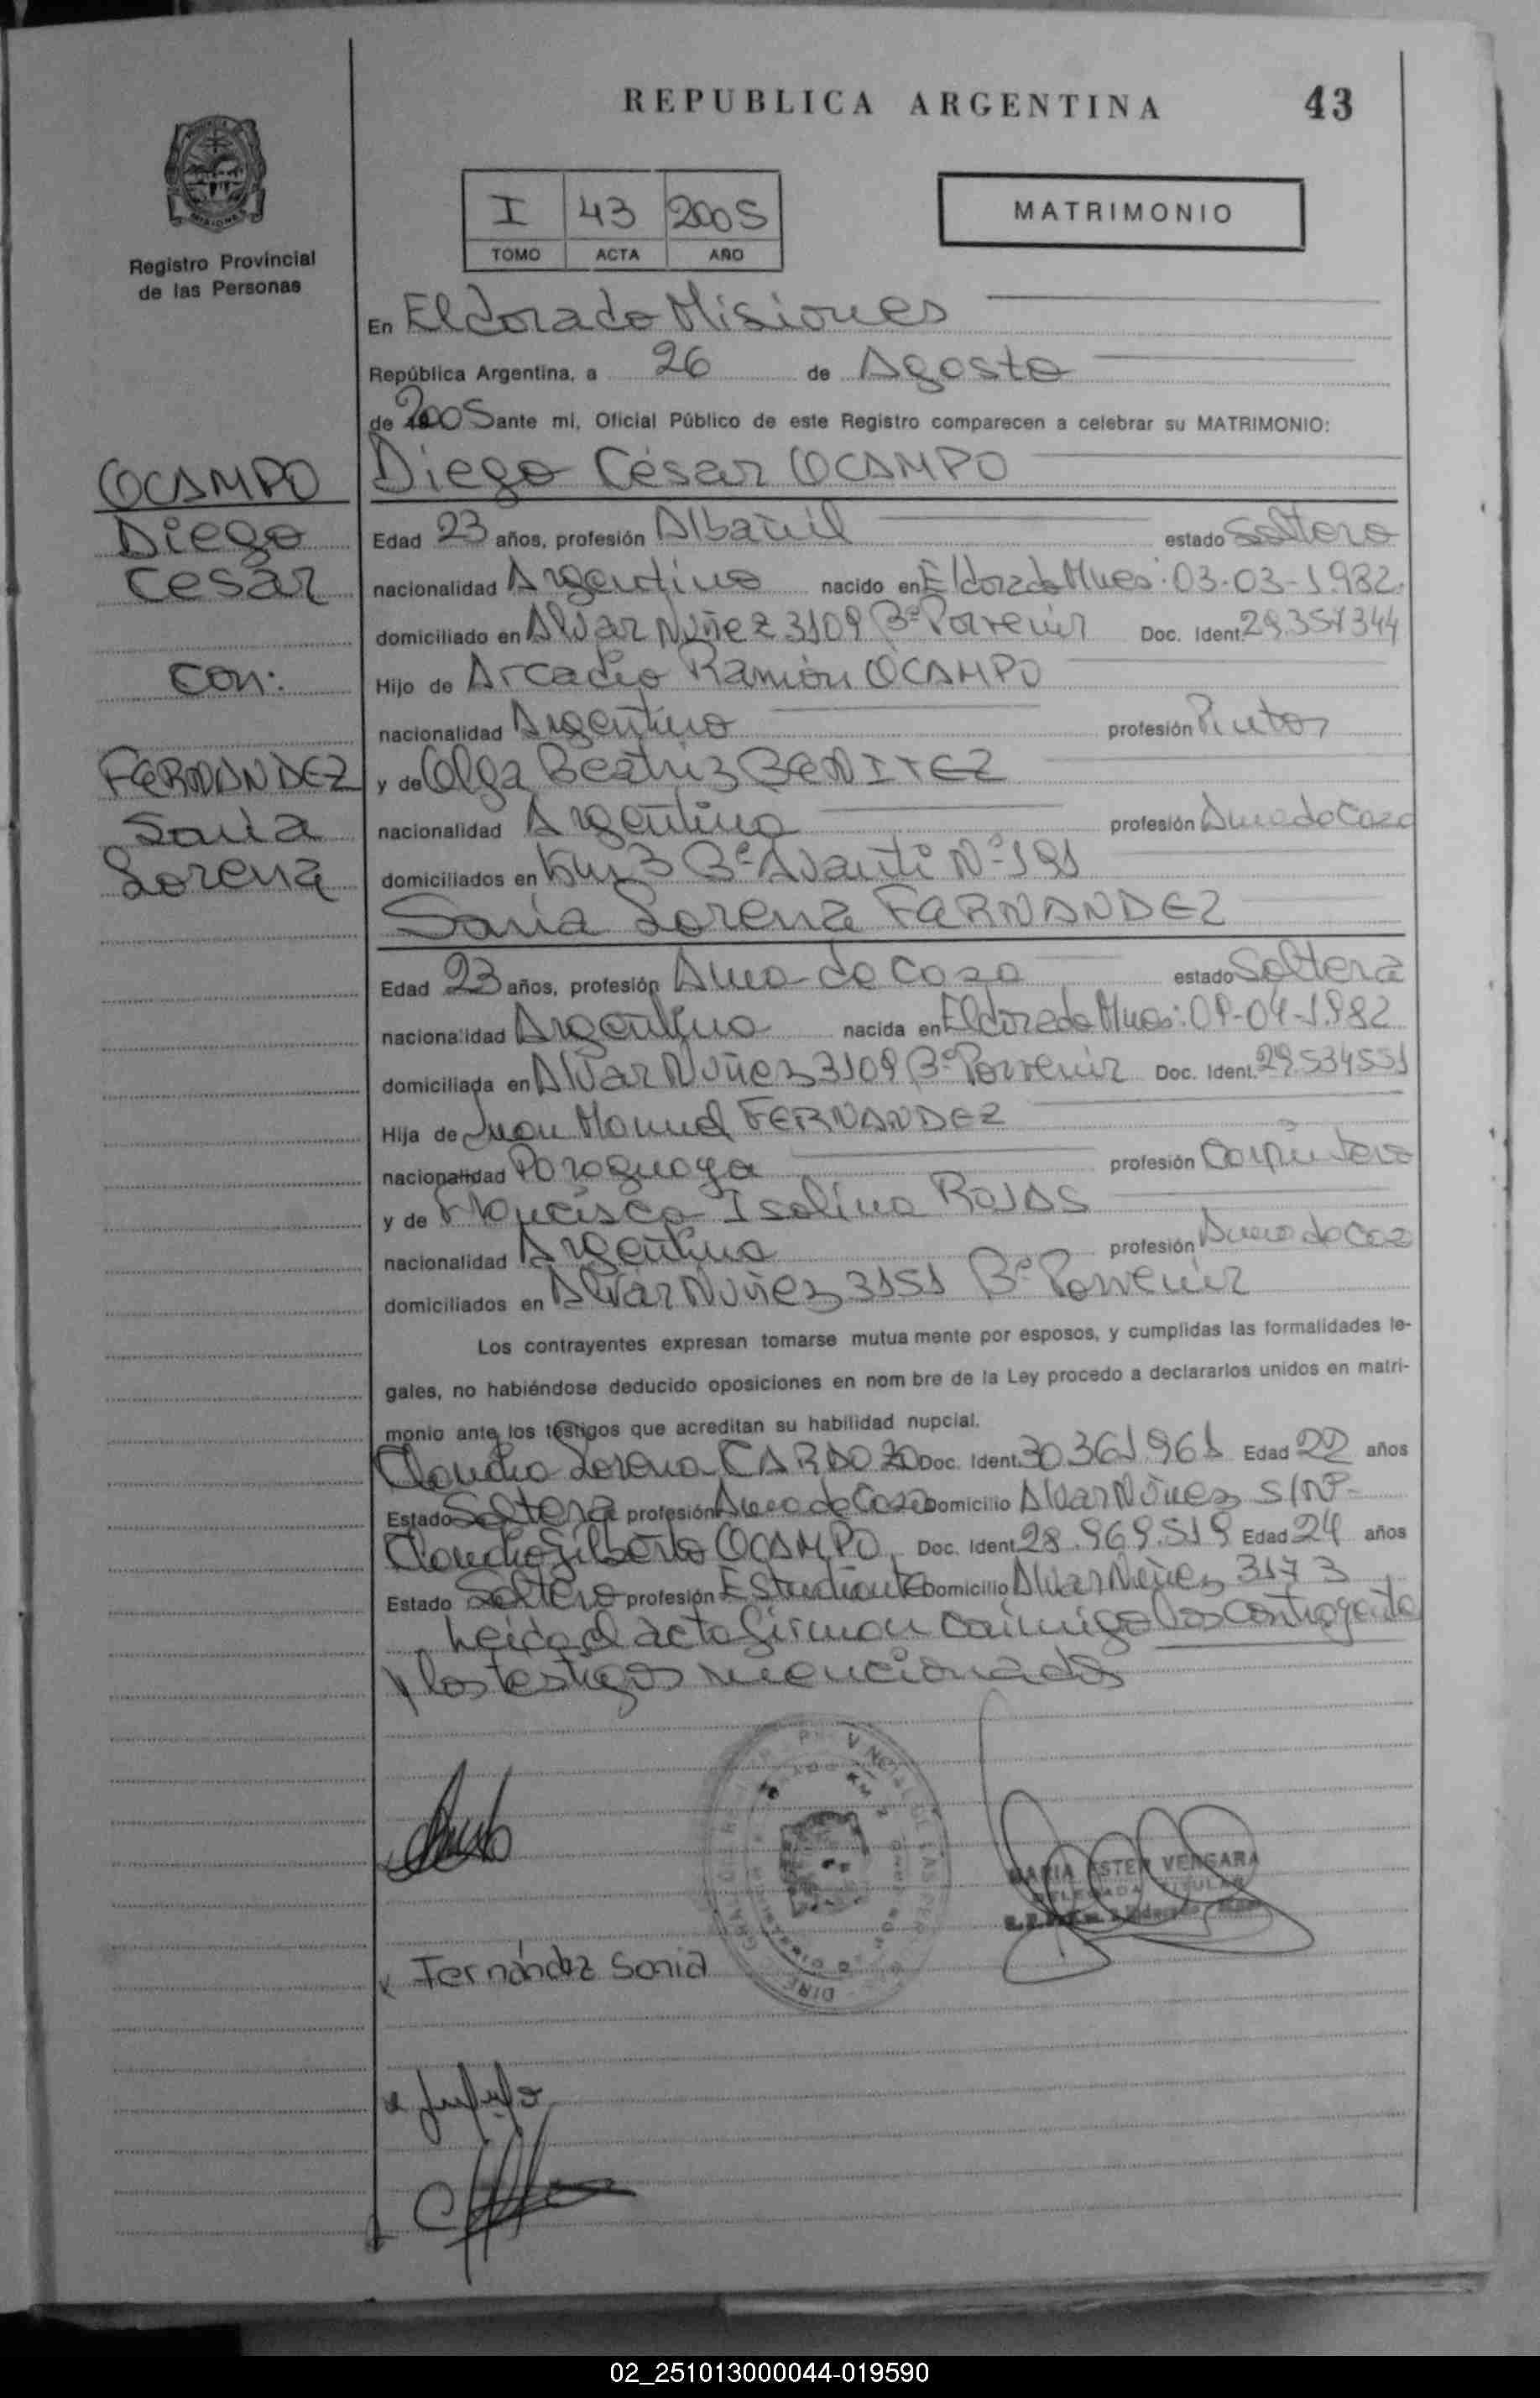 REPUBLICA ARGENTINA 43
Registro Provincial
de las Personas
I 43 2005
TOMO ACTA AÑO
MATRIMONIO
En Eldorado Misiones
República Argentina, a 26 de Agosto
de 2005 ante mi, Oficial Público de este Registro comparecen a celebrar su MATRIMONIO:
OCAMPO
Diego
Cesar
con:
FERNANDEZ
Sonia
Lorena
Diego César OCAMPO
Edad 23 años, profesión Albañil estado Soltero
nacionalidad Argentino nacido en Eldorado Mnes: 03-03-1.982.
domiciliado en Alvar Nuñez 3109 Bº Porvenir Doc. Ident. 29.357344
Hijo de Arcadio Ramón OCAMPO
nacionalidad Argentino profesión Pintor
y de Olga Beatriz BENITEZ
nacionalidad Argentina profesión Ama de Casa
domiciliados en Km 3 Bº Avanti Nº 191
Sonia Lorena FERNANDEZ
Edad 23 años, profesión Ama de Casa estado Soltera
nacionalidad Argentina nacida en Eldorado Mnes: 09-04-1.982
domiciliada en Alvar Nuñez 3109 Bº Porvenir Doc. Ident. 29.534551
Hija de Juan Manuel FERNANDEZ
nacionalidad Paraguaya profesión Carpintero
y de Francisca Isolina ROJAS
nacionalidad Argentina profesión Ama de Casa
domiciliados en Alvar Nuñez 3151 Bº Porvenir
Los contrayentes expresan tomarse mutua mente por esposos, y cumplidas las formalidades le-
gales, no habiéndose deducido oposiciones en nom bre de la Ley procedo a declararlos unidos en matri-
monio ante los testigos que acreditan su habilidad nupcial.
Claudia Lorena CARDOZO Doc. Ident. 30.361.961 Edad 22 años
Estado Soltera profesión Ama de Casa Domicilio Alvar Núnez S/Nº-
Claudio Gilberto OCAMPO Doc. Ident. 28.969.519 Edad 24 años
Estado Soltero profesión Estudiante Domicilio Alvar Nuñez 3173
Leida el acta firman conmigo los contrayente
y los testigos mencionados
MARIA ESTER VERGARA
DELEGADA TITULAR
x Fernández Sonia
02_251013000044-019590